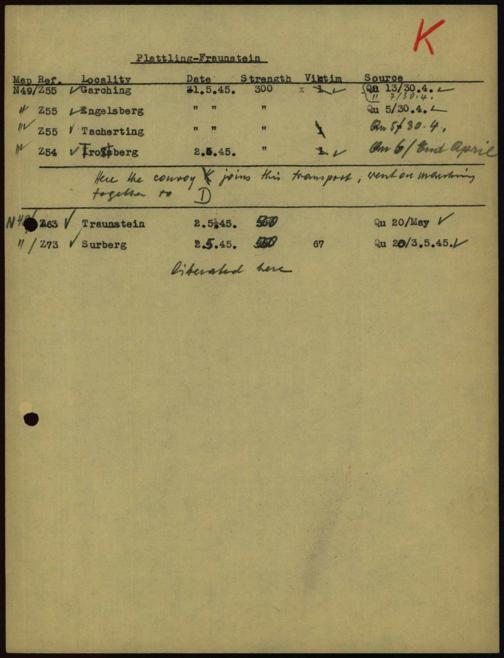 K
Plattling-Fraunstein
Map Ref. Locality Date Strength Victim Source
N49/Z55 ✓ Garching 1.5.45. 300 x 1 ✓ Qu 13/30.4. ✓
" 7/30.4.
" Z55 ✓ Engelsberg " " " Qu 5/30.4. ✓
" Z55 ✓ Tacherting " " " Qu 5/30.4.
" Z54 ✓ Trostberg 2.5.45. " 1 ✓ Qu 6/End April
Here the convoy K joins this transport, went on marching
together to D
N48/Z63 ✓ Traunstein 2.5.45. Qu 20/May ✓
" / Z73 ✓ Surberg 2.5.45. 67 Qu 20/3.5.45. ✓
liberated here